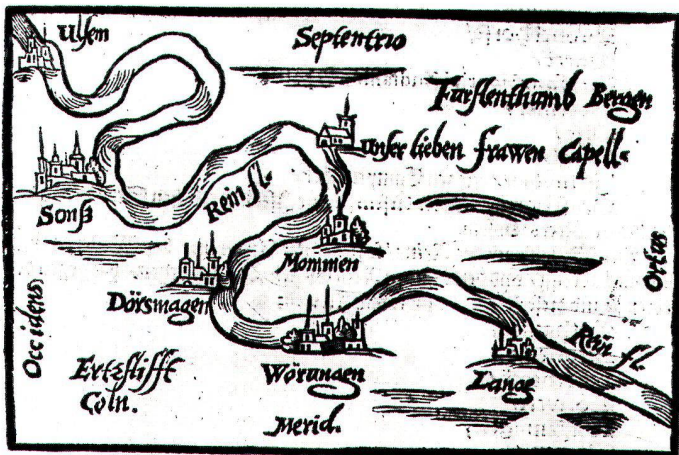 Ulsem
Septentrio
Furstenthumb Bergen
unser lieben frawen Capell
Sonß
Rein fl.
Mommen
Dörsmagen
Occidens
Ortus
Ertzstifft
Cöln.
Wörungen
Lange
Rein fl.
Merid.